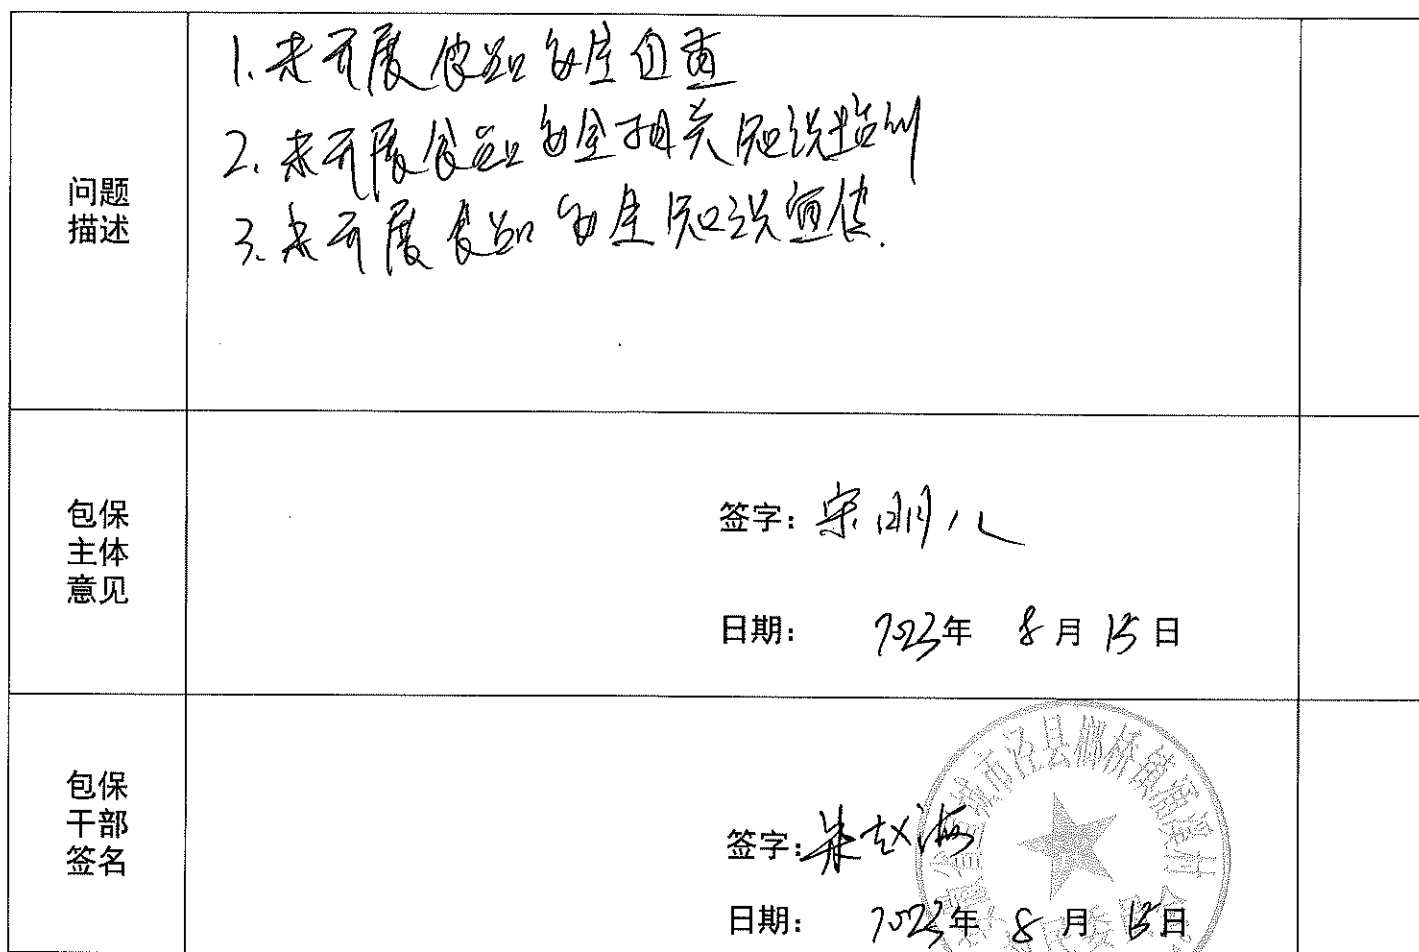 1. 未开展食品安全自查
2. 未开展食品安全相关知识培训
问题
描述
3. 未开展食品安全知识宣传.
包保
主体
意见
签字：宋明儿
日期： 2023年 8月 15日
包保
干部
签名
签字：朱赵海
日期： 2023年 8月 15日
安徽省宣城市泾县榔桥镇涌溪村